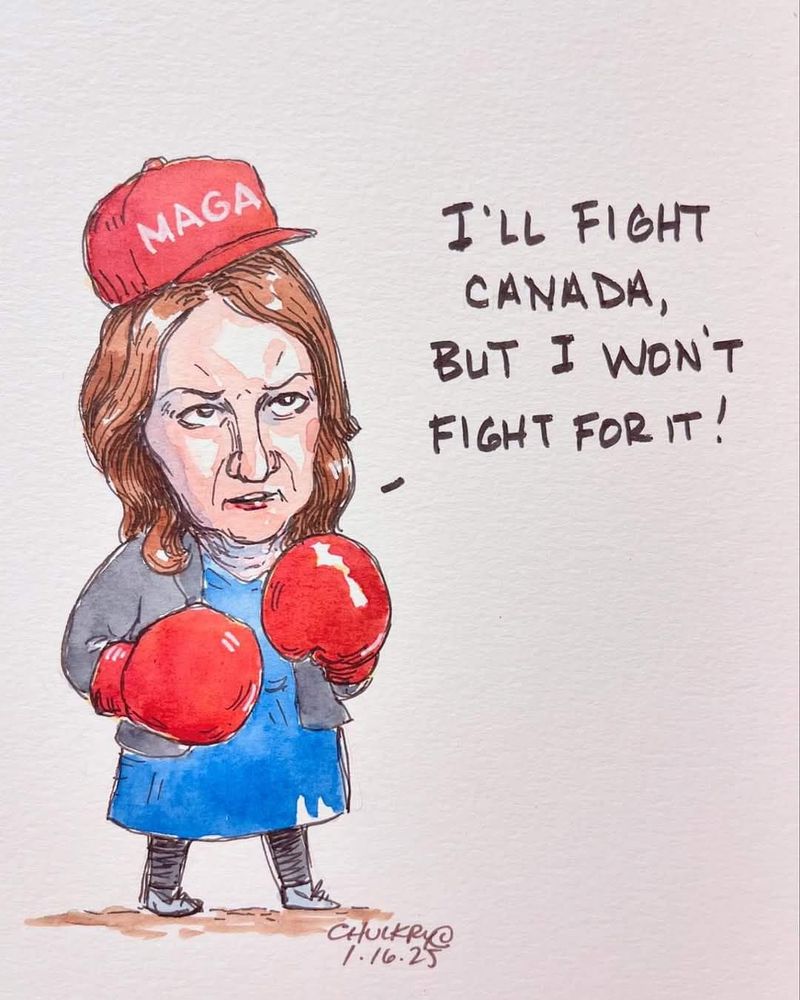 MAGA
I'LL FIGHT
CANADA,
BUT I WON'T
FIGHT FOR IT!
CHULKRY©
1.16.25